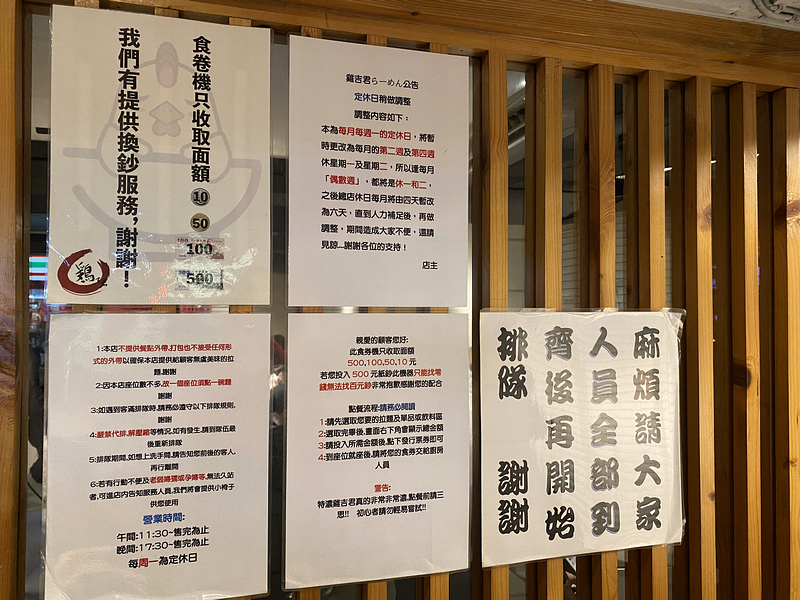 食卷機只收取面額
10
50
100
500
我們有提供換鈔服務,謝謝!
鶏
雞吉君らーめん公告
定休日稍做調整
調整內容如下：
本為每月每週一的定休日，將暫
時更改為每月的第二週及第四週
休星期一及星期二，所以逢每月
「偶數週」，都將是休一和二，
之後總店休日每月將由四天暫改
為六天，直到人力補足後，再做
調整，期間造成大家不便，還請
見諒...謝謝各位的支持！
店主
1:本店不提供餐點外帶,打包也不接受任何形
式的外帶以確保本店提供給顧客無慮美味的拉
麵,謝謝
2:因本店座位數不多,故一個座位須點一碗麵
謝謝
3:如遇到客滿排隊時,請務必遵守以下排隊規則,
謝謝
4:嚴禁代排,解壓縮等情況,如有發生,請到隊伍最
後重新排隊
5:排隊期間,如想上洗手間,請告知您前後的客人,
再行離開
6:若有行動不便及老弱婦孺或孕婦等,無法久站
者,可進店內告知服務人員,我們將會提供小椅子
供您使用
營業時間:
午間:11:30~售完為止
晚間:17:30~售完為止
每周一為定休日
親愛的顧客您好:
此食券機只收取面額
500,100,50,10 元
若您投入 500 元紙鈔此機器只能找零
錢無法找百元鈔非常抱歉感謝您的配合
點餐流程:請務必閱讀
1:請先選取您要的拉麵及單品或飲料區
2:選取完畢後,畫面右下角會顯示總金額
3:請投入所需金額後,點下發行票券即可
4:到座位就座後,請將您的食券交給廚房
人員
警告:
特濃雞吉君真的非常非常濃,點餐前請三
思!! 初心者請勿輕易嘗試!!
麻煩請大家
人員全部到
齊後再開始
排隊 謝謝